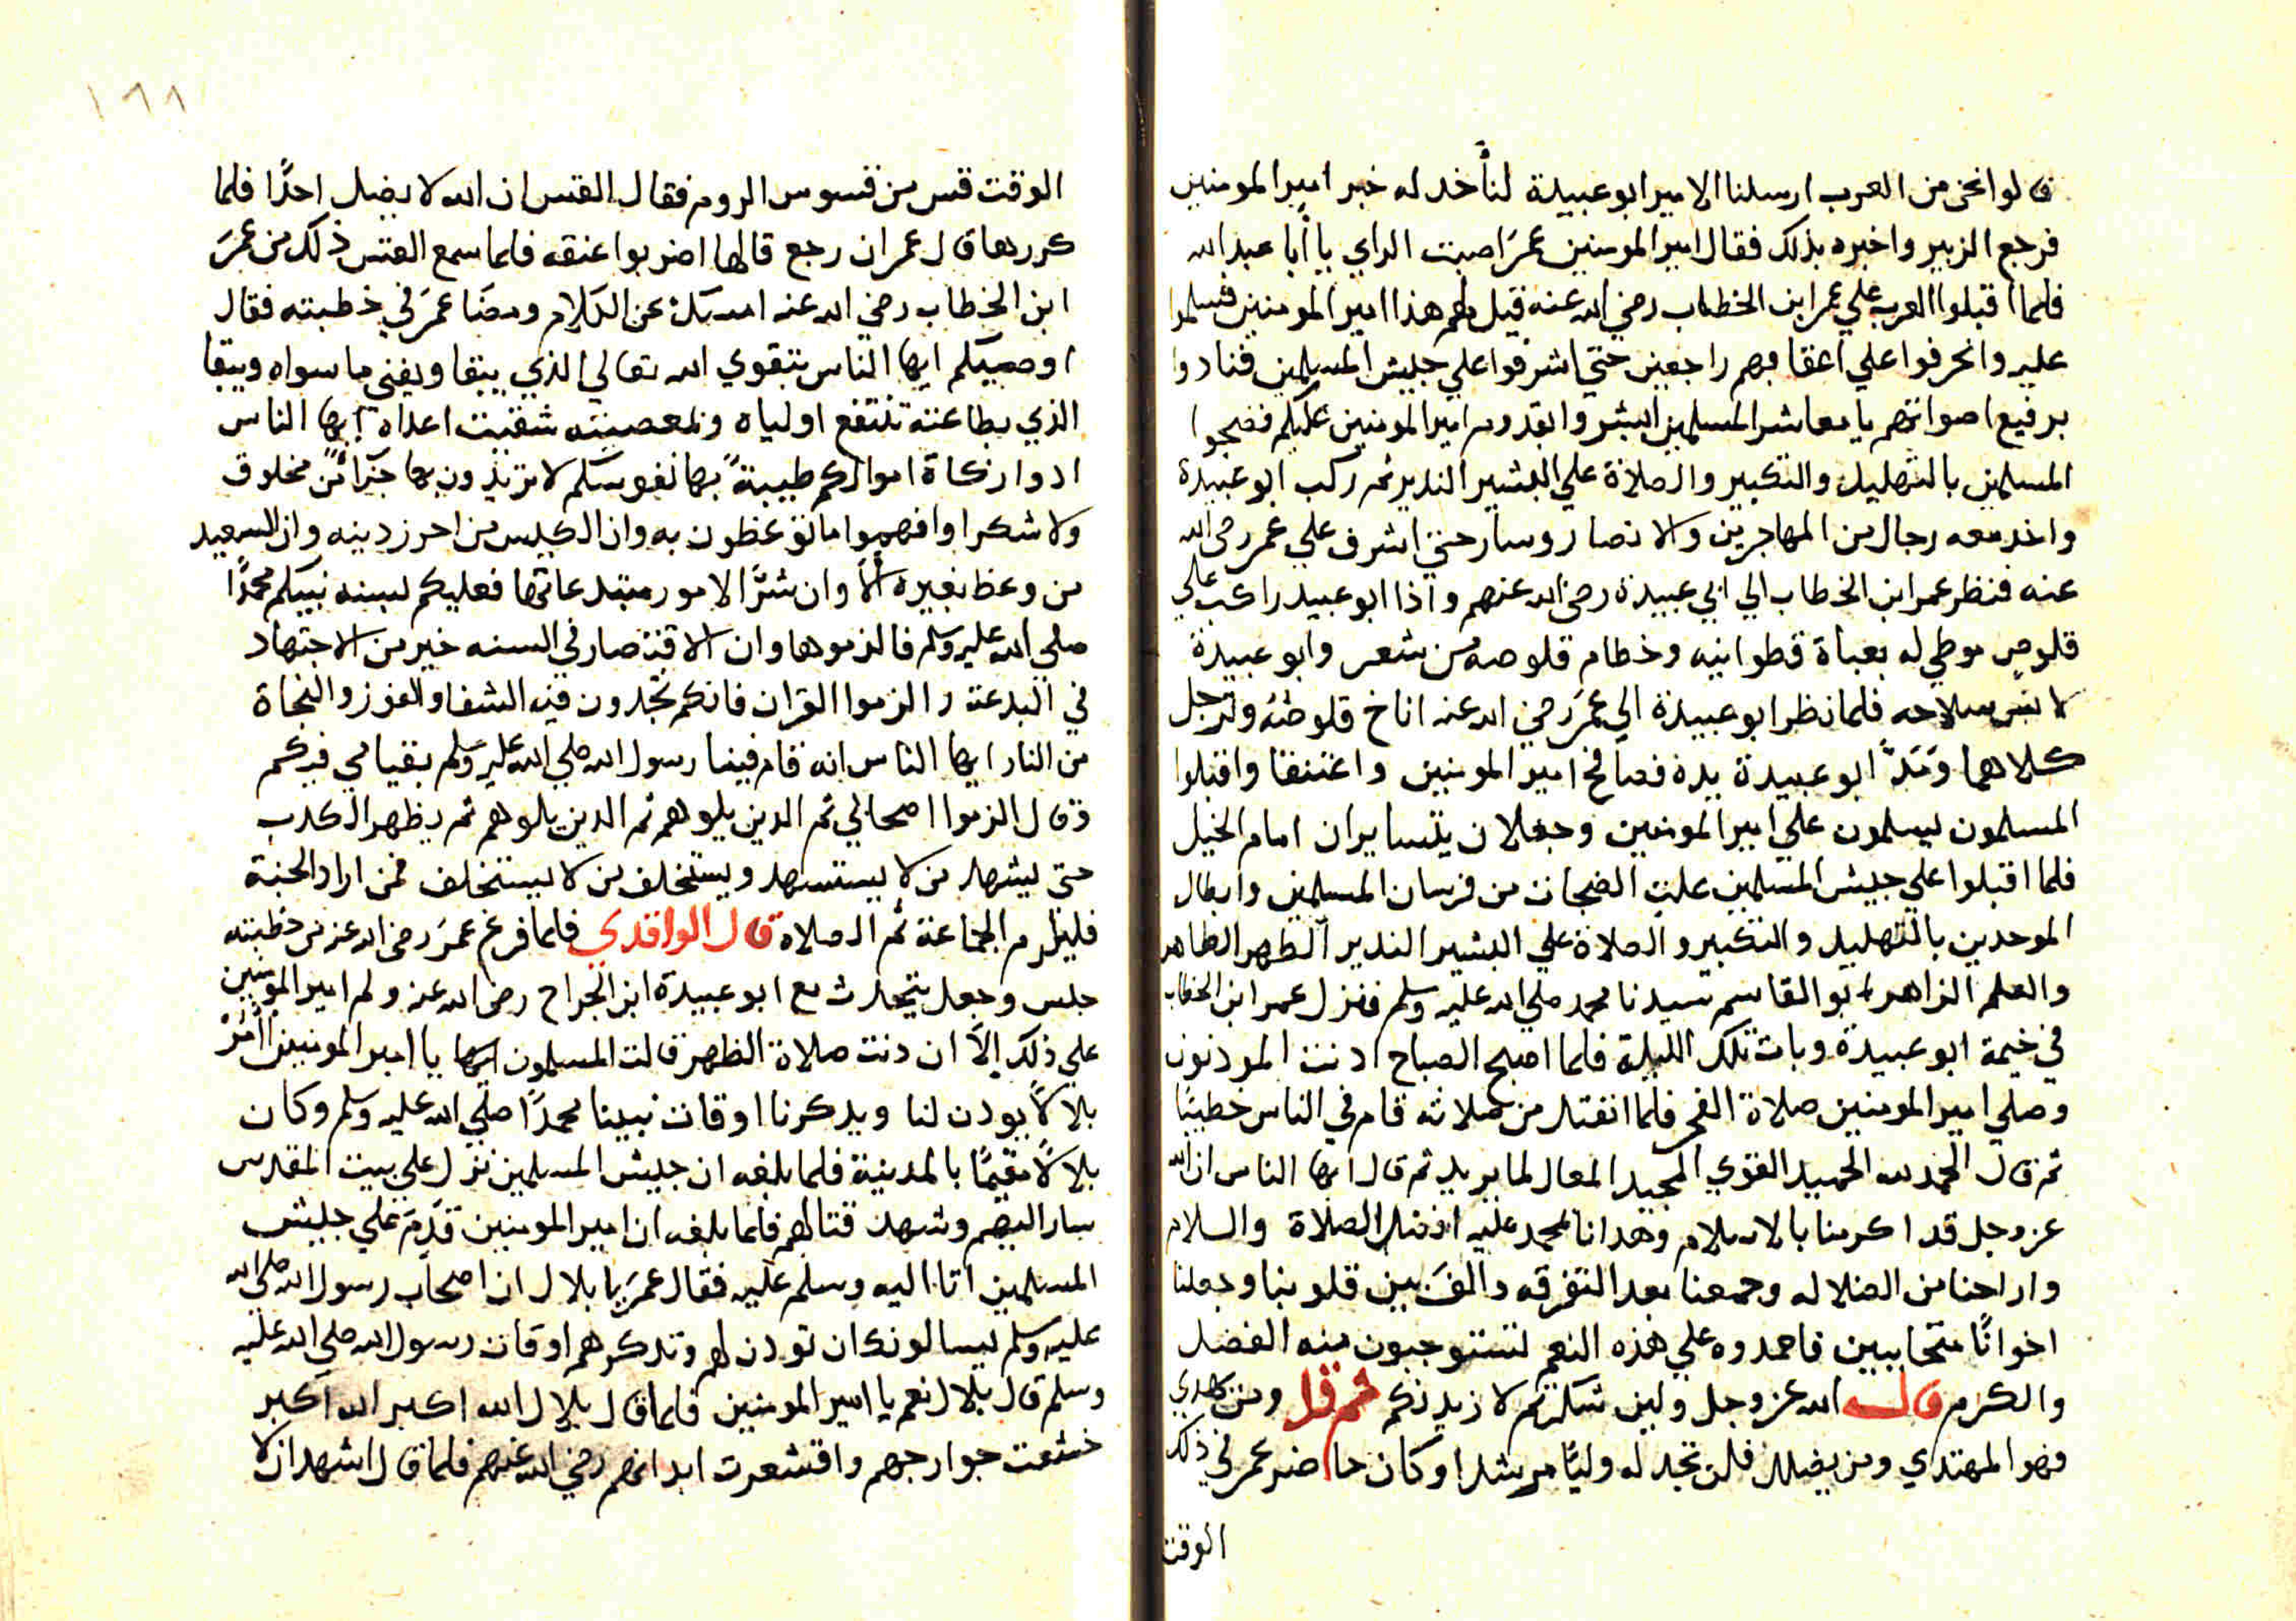 قالوا نحن من العرب ارسلنا الامير ابو عبيدة لنأخد له خبر امير المومنين
فرجع الزبير واخبره بذلك فقال امير المومنين عمر اصبت الراي يا أبا عبد الله
فلما اقبلوا العرب علي عمر ابن الخطاب رضي الله عنه قيل لهم هذا امير المومنين فسلموا
عليه وانحرفوا علي اعقابهم راجعين حتي اشرفوا علي جيش المسلمين فنادوا
برفيع اصواتهم يا معاشر المسلمين ابشروا بقدوم امير المومنين عليكم فضجوا
المسلمين بالتهليل والتكبير والصلاة علي البشير الندير ثم ركب ابو عبيدة
واخد معه رجال من المهاجرين والانصار وسار حتي اشرف علي عمر رضي الله
عنه فنظر عمر ابن الخطاب الي ابي عبيدة رضي الله عنهم واذا ابو عبيد راكب علي
قلوص موطي له بعباة قطوانيه وخطام قلوصه من شعر وابو عبيدة
لابس سلاحه فلما نظر ابو عبيدة الي عمر رضي الله عنه اناخ قلوصه وترجل
كلاهما ومدّ ابو عبيدة يده فصافح امير المومنين واعتنقا واقبلوا
المسلمون يسلمون علي امير المومنين وجعلان يتسايران امام الخيل
فلما اقبلوا علي جيش المسلمين علت الضجات من فرسان المسلمين وابطال
الموحدين بالتهليل والتكبير والصلاة علي البشير الندير الطهر الطاهر
والعلم الزاهر ابو القاسم سيدنا محمد صلي الله عليه وسلم فنزل عمر ابن الخطاب
في خيمة ابو عبيدة وبات تلك الليلة فلما اصبح الصباح ادنت المودنون
وصلي امير المومنين صلاة الفجر فلما انفتل من صلاته قام في الناس خطيبًا
ثم قال الحمد لله الحميد القوي المجيد الفعال لما يريد ثم قال ايها الناس ان الله
عز وجل قد اكرمنا بالاسلام وهدانا بمحمد عليه افضل الصلاة والسلام
وازاحنا من الضلاله وجمعنا بعد التفرقه والف بين قلوبنا وجعلنا
اخوانًا متحاببين فاحمدوه علي هذه النعم لتستوجبون منه الفضل
والكرم قال الله عز وجل ولين شكرتم لازيدنكم ثم قرا ومن يهدي
فهو المهتدي ومن يضلل فلن تجد له وليًا مرشدا وكان حاضر عمر في ذلك
الوقت
١٨٨
الوقت قس من قسوس الروم فقال القس ان الله لا يضل احدًا فلما
كررها قال عمر ان رجع قالها اضربوا عنقه فلما سمع القس ذلك من عمر
ابن الخطاب رضي الله عنه امسك عن الكلام ومضا عمر في خطبته فقال
اوصيكم ايها الناس بتقوي الله تعالي الذي يبقا ويفني ما سواه ويبقا
الذي بطاعته تنتفع اولياه وبمعصيته شقيت اعداه ايها الناس
ادوا زكاة اموالكم طيبةً بها نفوسكم لا تريدون بها جزاً من مخلوق
ولا شكرا وافهموا ما توعظون به وان الكيس من احرز دينه وان السعيد
من وعظ بغيره ألا وان شرَّ الامور مبتدعاتها فعليكم بسنه نبيكم محمدًا
صلي الله عليه وسلم فالزموها وان الاقتصار في السنه خير من الاجتهاد
في البدعة والزموا القران فانكم تجدون فيه الشفا والفوز والنجاة
من النار ايها الناس انه قام فينا رسول الله صلي الله عليه وسلم بقيامي فيكم
وقال الزموا اصحابي ثم الدين يلوهم ثم الدين يلوهم ثم يظهر الكدب
حتي يشهد من لا يستشهد ويستخلف من لا يستخلف فمن اراد الجنة
فليلزم الجماعة ثم الصلاة قال الواقدي فلما فرغ عمر رضي الله عنه من خطبته
جلس وجعل يتحدث مع ابو عبيدة ابن الجراح رضي الله عنه ولم امير المومنين
علي ذلك إلا ان دنت صلاة الظهر قالت المسلمون ايها يا امير المومنين اأمر
بلالاً يودن لنا ويدكرنا اوقات نبينا محمدًا صلي الله عليه وسلم وكان
بلالاً مقيمًا بالمدينة فلما بلغه ان جيش المسلمين نزل علي بيت المقدس
سار اليهم وشهد قتالهم فلما بلغه ان امير المومنين قدم علي جيش
المسلمين اتا اليه وسلم عليه فقال عمر يا بلال ان اصحاب رسول الله صلي الله
عليه وسلم يسالونك ان تودن لهم وتدكرهم اوقات رسول الله صلي الله عليه
وسلم قال بلال نعم يا امير المومنين فلما قال بلال الله اكبر الله اكبر
خشعت جوارحهم واقشعرت ابدانهم رضي الله عنهم فلما قال اشهد ان لا